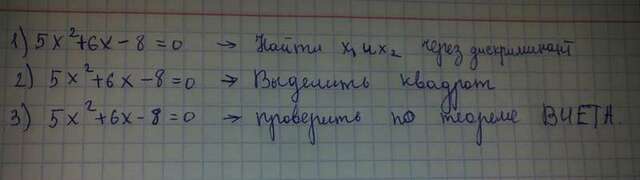 1) 5x²+6x-8=0 → Найти x₁ и x₂ через дискриминант
2) 5x²+6x-8=0 → Выделить квадрат
3) 5x²+6x-8=0 → проверить по теореме ВИЕТА.